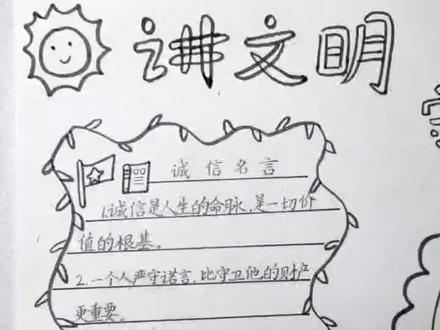 讲文明
诚信名言
1.诚信是人生的命脉,是一切价
值的根基。
2.一个人严守诺言,比守卫他的财产
更重要。